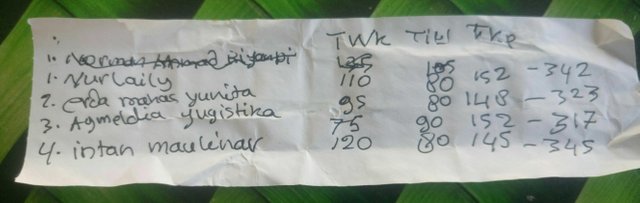 TWK TIU TKP
1. Norman Ahmad 135 105
1. Nurlaily 110 80 152 - 342
2. Orda mahas yunita 95 80 148 - 323
3. Agmeldia yugistika 75 90 152 - 317
4. intan maulinar 120 80 145 - 345